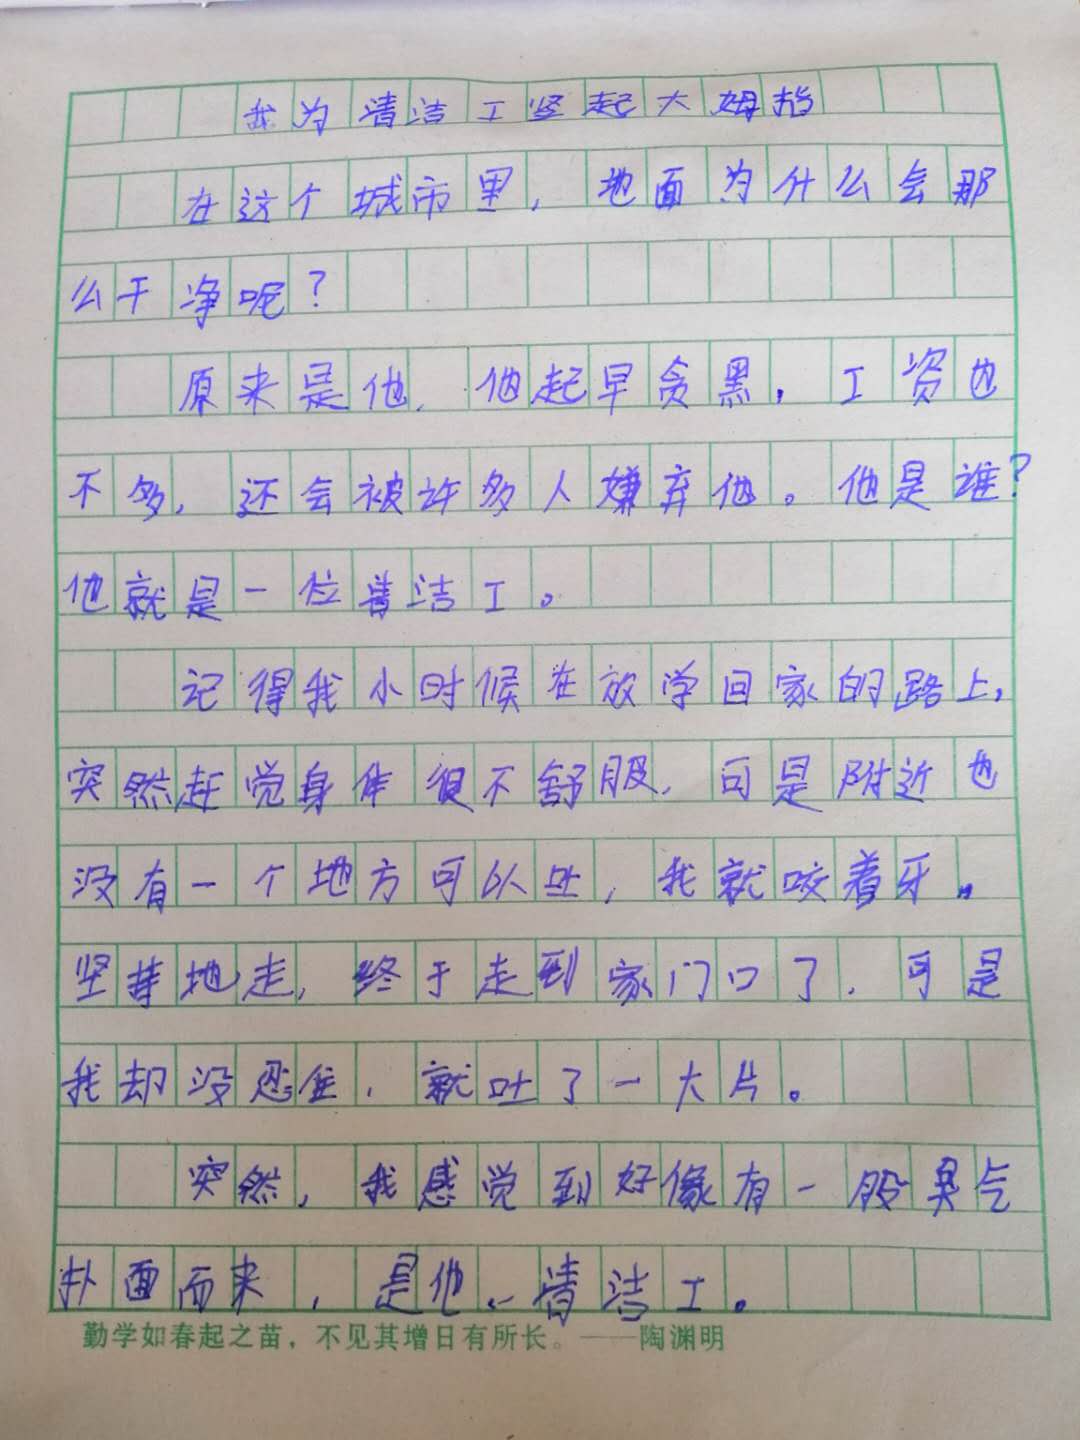 我为清洁工竖起大姆指
在这个城市里，地面为什么会那
么干净呢？
原来是他，他起早贪黑，工资也
不多，还会被许多人嫌弃他。他是谁？
他就是一位清洁工。
记得我小时候在放学回家的路上，
突然赶觉身体很不舒服，可是附近也
没有一个地方可以吐，我就咬着牙。
坚持地走，终于走到家门口了，可是
我却没忍住，就吐了一大片。
突然，我感觉到好像有一股臭气
扑面而来，是他、清洁工。
勤学如春起之苗，不见其增日有所长。——陶渊明